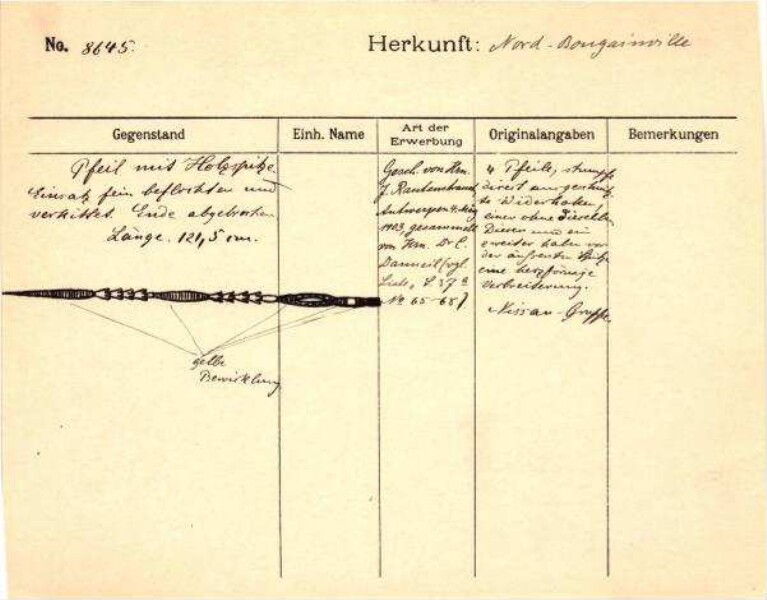 No. 8645.
Herkunft: Nord-Bougainville
Gegenstand
Einh. Name
Art der Erwerbung
Originalangaben
Bemerkungen
Pfeil mit Holzspitze.
Einsatz fein beflochten und
verkittet. Ende abgebrochen.
Länge. 121,5 cm.
gelbe
Bewicklung
Gesch. von Hrn.
J. Rautenstrauch
Antwerpen 4. März
1903, gesammelt
von Hrn. Dr C.
Danneil (vgl.
Liste, S. 37
No 65-68)
4 Pfeile, stumpfe
te Widerhaken,
einer ohne dieselben
Dieser und ein
zweiter haben vor
der äußersten Spitze
eine herzförmige
Verbreiterung.
Nissan-Gruppe.